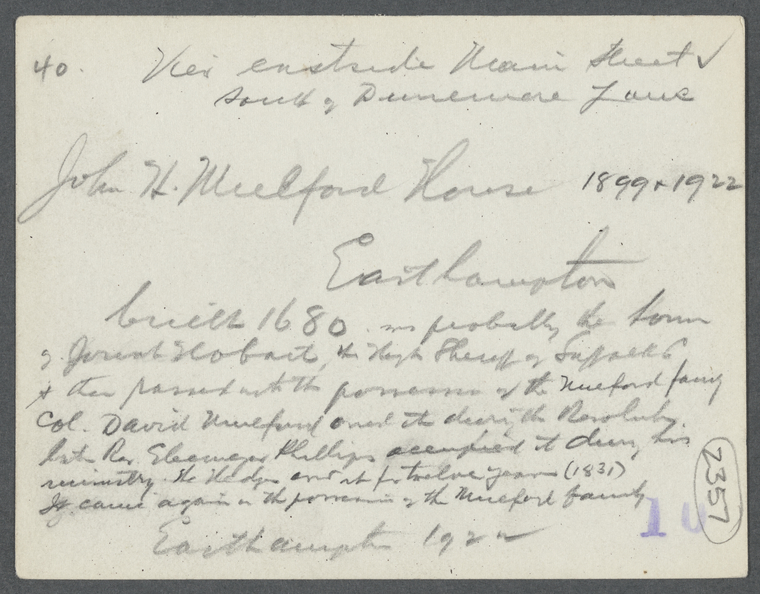 40. eastside Main Street ✓
South of Dunemere Lane
John H. Mulford House 1899 + 1922
Easthampton
built 1680 was probably the home
of Josiah Hobart, the High Sheriff of Suffolk C
& then passed into the possession of the Mulford family
Col. David Mulford owned it during the Revolution
Rev. Ebenezer Phillips occupied it during his
ministry. the Hedges owned it for twelve years (1831)
It came again in the possession of the Mulford family
Easthampton 1922
10
2357